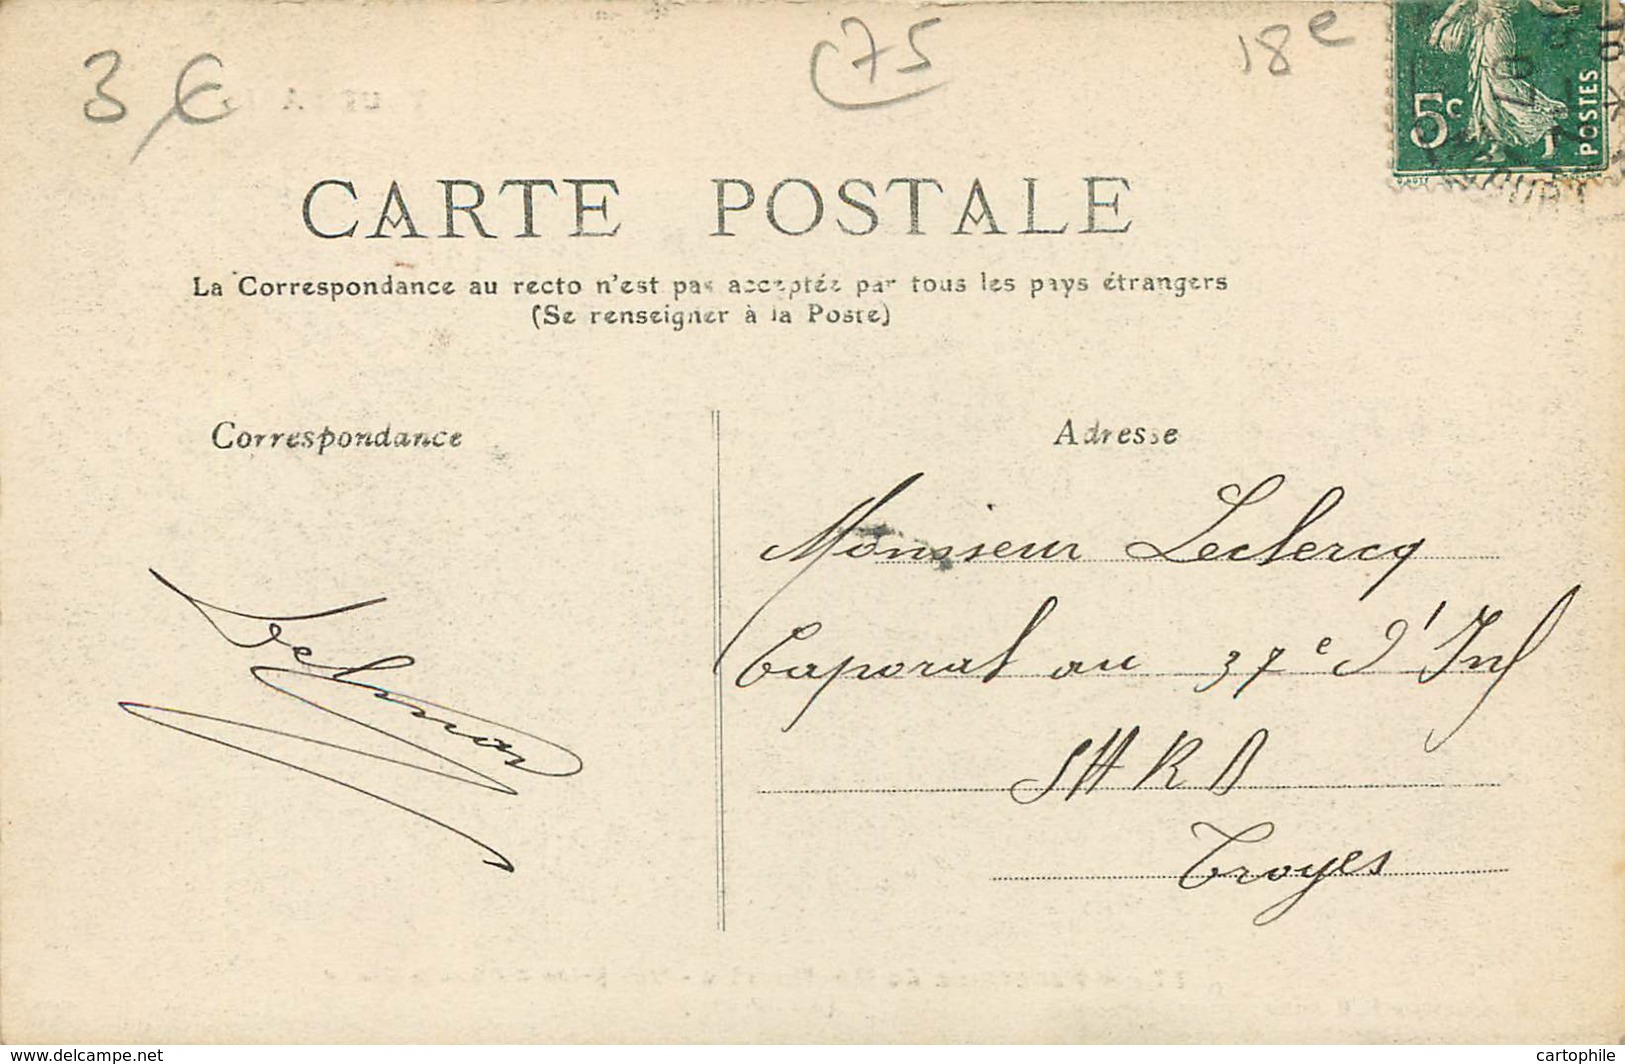 3 €
75
18e
5c
POSTES
07
CARTE POSTALE
La Correspondance au recto n'est pas acceptée par tous les pays étrangers
(Se renseigner à la Poste)
Correspondance
Adresse
Monsieur Leclercq
Caporal au 37e d'Inf
SHRD
Troyes
www.delcampe.net
cartophile